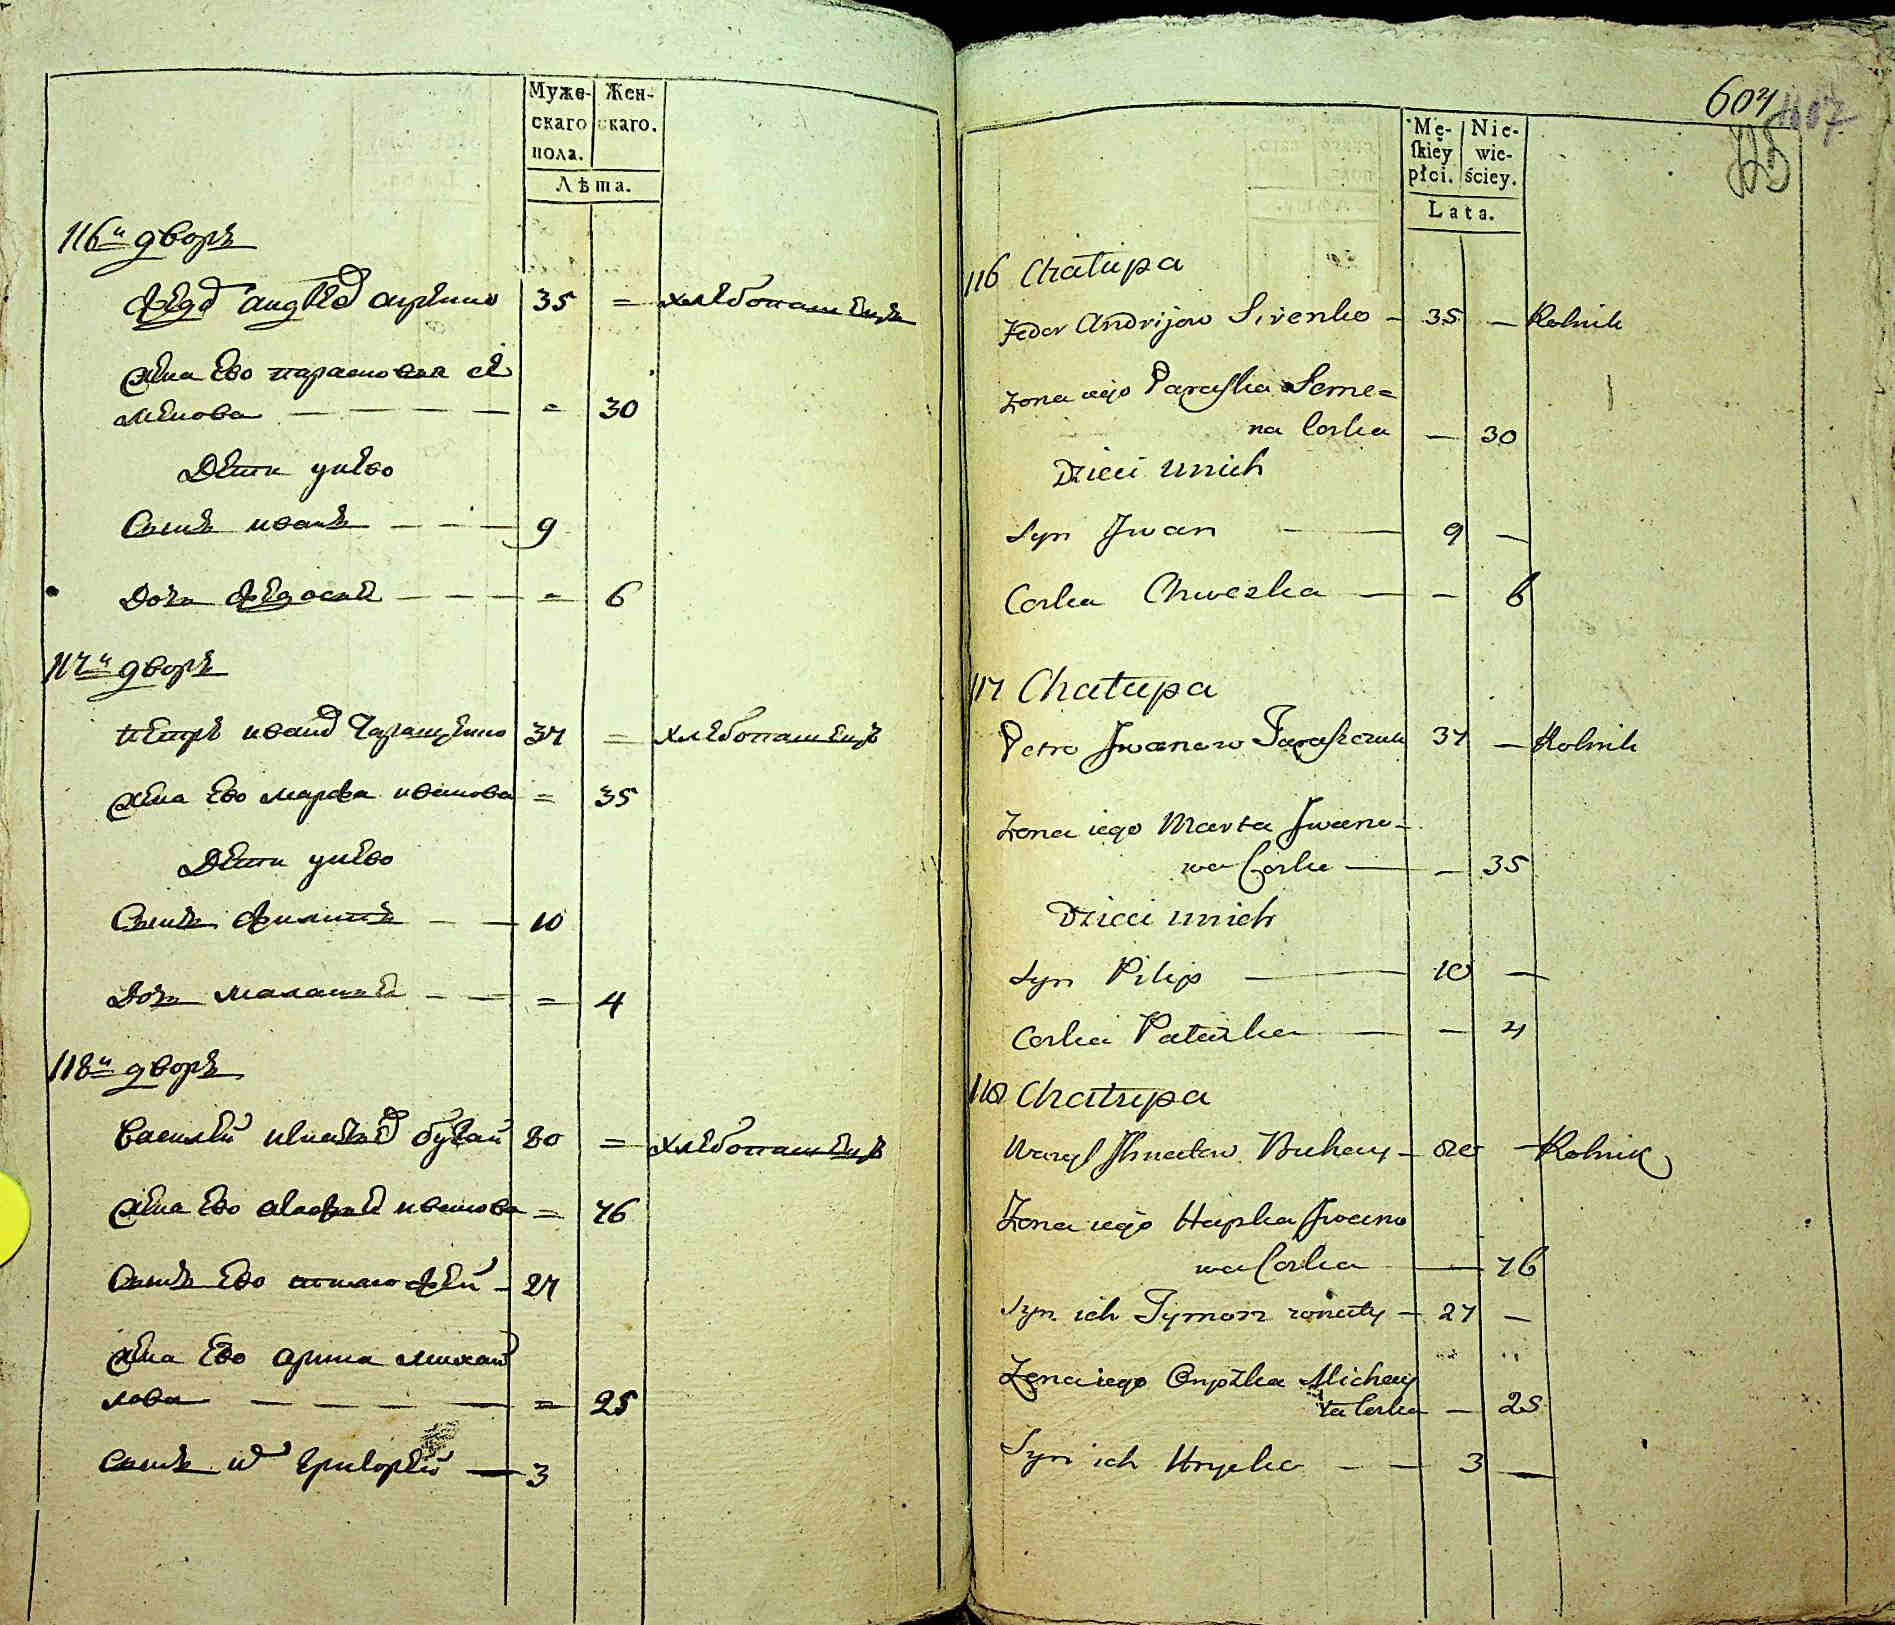 Муже- Жен-
скаго скаго.
пола.
Лѣта.
116й дворъ
Федоръ андреевъ сиренко 35 = хлебопашецъ
Жена Ево парасковия се
менова = 30
Дети унево
Сынъ иванъ 9
Дочь Федосия = 6
117й дворъ
петръ ивановъ Таращенко 37 = хлебопашецъ
Жена Ево марфа иванова = 35
Дети унево
Сынъ филипъ 10
Дочь маланья = 4
118й дворъ
Василей игнатовъ бугай 80 = хлебопашецъ
Жена Ево агафия иванова = 76
Сынъ Ево тимофей 27
Жена Ево орина михай
лова = 25
Сынъ их григорей 3
604 1107
Mę- Nie-
ſkiey wie-
płci. ściey.
Lata.
116 Chałupa
Fedor Andrijow Sirenko - 35 - Rolnik
Żona iego Paraſka Seme=
na Corka - 30
Dzieci unich
Syn Jwan 9 -
Corka Chweska - 6
117 Chałupa
Petro Jwanow Taraſzczuk 37 - Rolnik
Żona iego Marta Jwano-
wa Corka - 35
Dzieci unich
Syn Pilip 10 -
Corka Patałka - 4
118 Chałupa
Wasyl Jhnatow Buhay - 80 - Rolnik
Żona iego Hapka Jwano
wa Corka - 76
Syn ich Tymosz żonaty - 27 -
Żona iego Onyżka Michay
ła Corka - 25
Syn ich Hryćko - 3 -